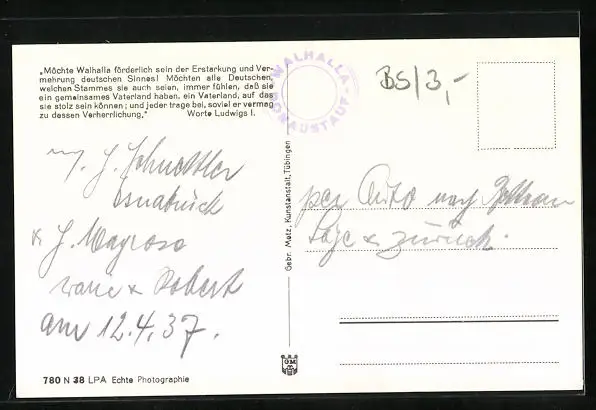 „Möchte Walhalla förderlich sein der Erstarkung und Ver-
mehrung deutschen Sinnes! Möchten alle Deutschen,
welchen Stammes sie auch seien, immer fühlen, daß sie
ein gemeinsames Vaterland haben, ein Vaterland, auf das
sie stolz sein können; und jeder trage bei, soviel er vermag
zu dessen Verherrlichung."
Worte Ludwigs I.
WALHALLA-
DONAUSTAUF
BS/3,-
Osnabrück
& Robert
am 12.4.37.
Gebr. Metz, Kunstanstalt, Tübingen
per Auto nach
& zurück.
GM
780 N 38 LPA Echte Photographie